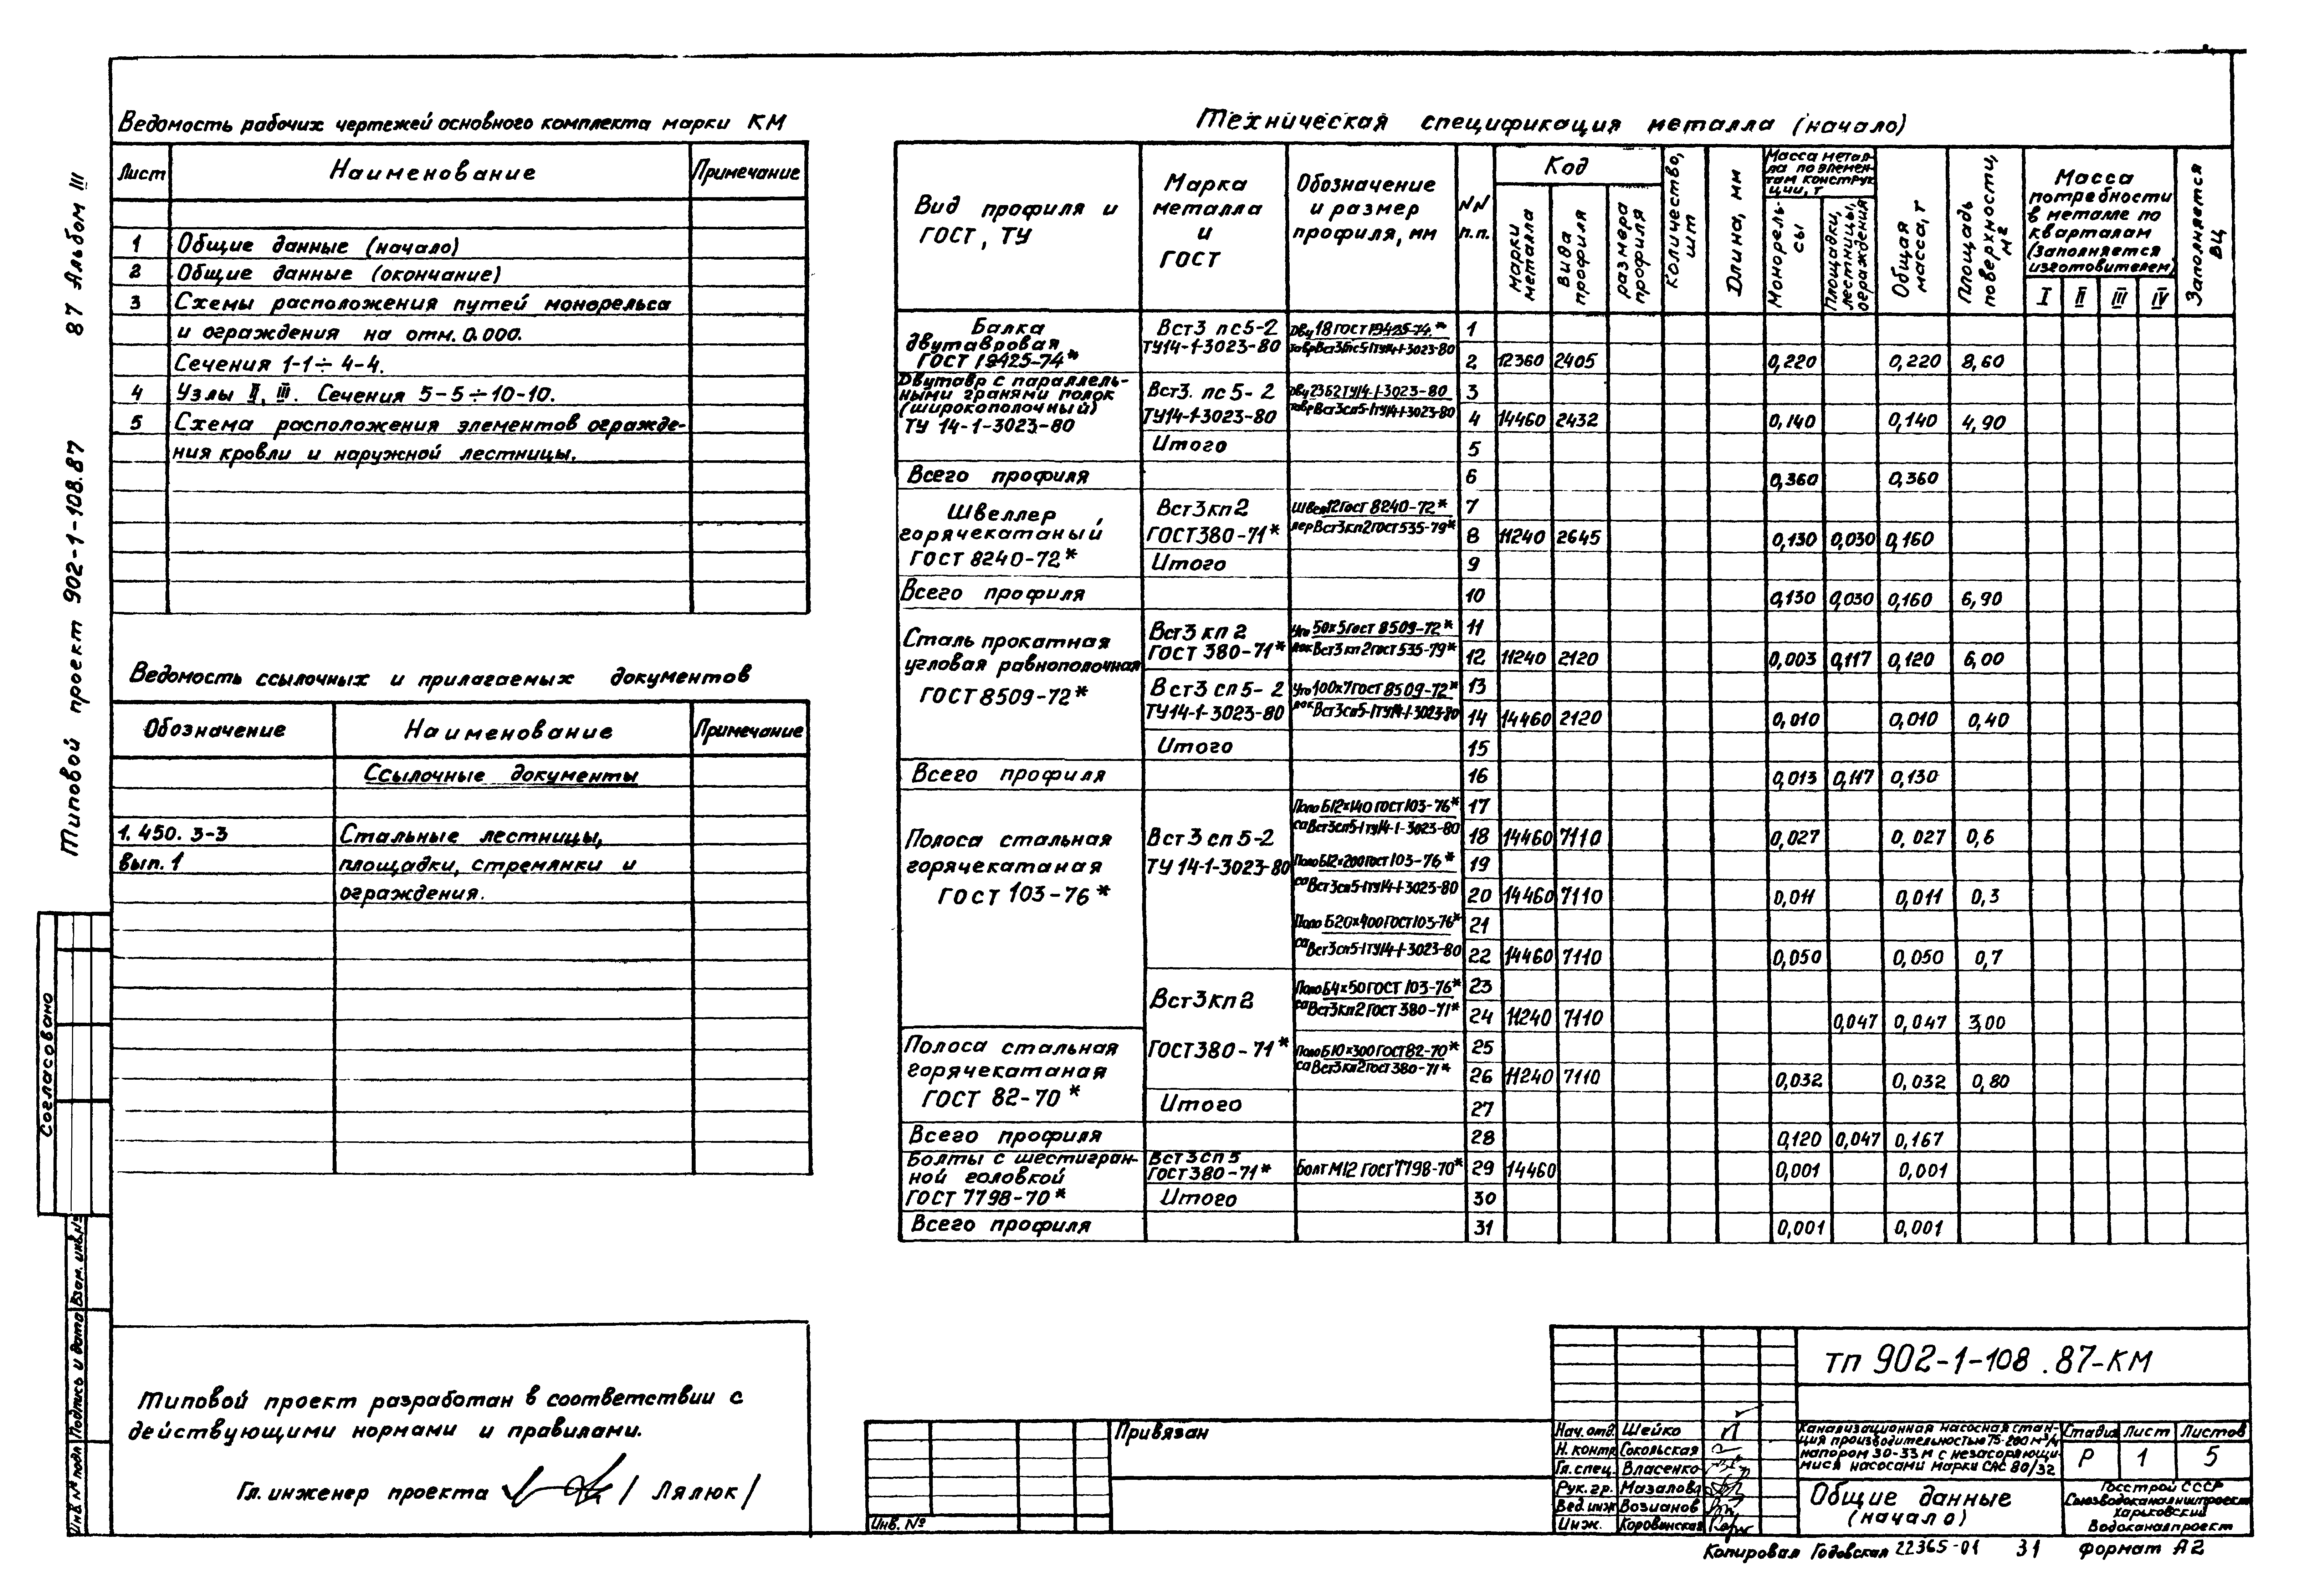 Ведомость рабочих чертежей основного комплекта марки КМ
Лист Наименование Примечание
1 Общие данные (начало)
2 Общие данные (окончание)
3 Схемы расположения путей монорельса
и ограждения на отм. 0.000.
Сечения 1-1÷4-4.
4 Узлы II, III. Сечения 5-5÷10-10.
5 Схема расположения элементов огражде-
ния кровли и наружной лестницы.
Ведомость ссылочных и прилагаемых документов
Обозначение Наименование Примечание
Ссылочные документы
1.450.3-3 Стальные лестницы,
вып.1 площадки, стремянки и
ограждения.
Типовой проект разработан в соответствии с
действующими нормами и правилами.
Гл. инженер проекта / Лялюк /
Типовой проект 902-1-108.87 87 Альбом III
Согласовано
Инв.№ подл. Подпись и дата Взам. инв.№
Техническая спецификация металла (начало)
Вид профиля и ГОСТ, ТУ
Марка металла и ГОСТ
Обозначение и размер профиля, мм
NN п.п.
Код
Марки металла
Вида профиля
размера профиля
Количество, шт
Длина, мм
Масса метал-
ла по элемен-
там конструк
ции, т
Монорель-
сы
Площадки, лестницы, ограждения
Общая масса, т
Площадь поверхности, м²
Масса
потребности
в металле по
кварталам
(заполняется
изготовителем)
I II III IV
Заполняется ВЦ
Балка двутавровая ГОСТ 19425-74*
Вст3 пс5-2 ТУ14-1-3023-80
Дву 18 ГОСТ 19425-74* 1
2 12360 2405 0,220 0,220 8,60
Двутавр с параллель-
ными гранями полок
(широкополочный)
ТУ 14-1-3023-80
Вст3. пс 5-2 ТУ14-1-3023-80
Дву 23Б2 ТУ14-1-3023-80 3
тавр Вст3сп5-1 ТУ14-1-3023-80 4 14460 2432 0,140 0,140 4,90
Итого 5
Всего профиля 6 0,360 0,360
Швеллер горячекатаный ГОСТ 8240-72*
Вст3кп2 ГОСТ380-71*
Швел 12 ГОСТ 8240-72* 7
лер Вст3кп2 ГОСТ535-79* 8 11240 2645 0,130 0,030 0,160
Итого 9
Всего профиля 10 0,130 0,030 0,160 6,90
Сталь прокатная угловая равнополочная ГОСТ 8509-72*
Вст3 кп 2 ГОСТ 380-71*
Уго 50x5 ГОСТ 8509-72* 11
лок Вст3 кп2 ГОСТ 535-79* 12 11240 2120 0,003 0,117 0,120 6,00
Вст3 сп5-2 ТУ14-1-3023-80
Уго 100x7 ГОСТ 8509-72* 13
лок Вст3сп5-1 ТУ14-1-3023-80 14 14460 2120 0,010 0,010 0,40
Итого 15
Всего профиля 16 0,013 0,117 0,130
Полоса стальная горячекатаная ГОСТ 103-76*
Вст3 сп5-2 ТУ 14-1-3023-80
Поло Б12x140 ГОСТ103-76* 17
са Вст3сп5-1 ТУ14-1-3023-80 18 14460 7110 0,027 0,027 0,6
Поло Б12x200 ГОСТ103-76* 19
са Вст3сп5-1 ТУ14-1-3023-80 20 14460 7110 0,011 0,011 0,3
Поло Б20x400 ГОСТ103-76* 21
са Вст3сп5-1 ТУ14-1-3023-80 22 14460 7110 0,050 0,050 0,7
Вст3кп2 ГОСТ380-71*
Поло Б4x50 ГОСТ 103-76* 23
са Вст3кп2 ГОСТ 380-71* 24 11240 7110 0,047 0,047 3,00
Полоса стальная горячекатаная ГОСТ 82-70*
Поло Б10x300 ГОСТ82-70* 25
са Вст3кп2 ГОСТ 380-71* 26 11240 7110 0,032 0,032 0,80
Итого 27
Всего профиля 28 0,120 0,047 0,167
Болты с шестигран-
ной головкой
ГОСТ 7798-70*
Вст3сп5 ГОСТ380-71*
Болт М12 ГОСТ7798-70* 29 14460 0,001 0,001
Итого 30
Всего профиля 31 0,001 0,001
Привязан
Инв. №
ТП 902-1-108.87-КМ
Нач. отд. Шейко
Н. контр. Сокольская
Гл. спец. Власенко
Рук. гр. Мазалова
Вед. инж Возианов
Инж. Коровинская
Канализационная насосная стан-
ция производительностью 75-200 м³/ч
напором 30-33 м с незасоряющи-
мися насосами марки САС 80/32
Стадия Лист Листов
Р 1 5
Общие данные
(начало)
Госстрой СССР
Союзводоканалниипроект
Харьковский
Водоканалпроект
Копировал Годовская 22365-01 31 Формат А2